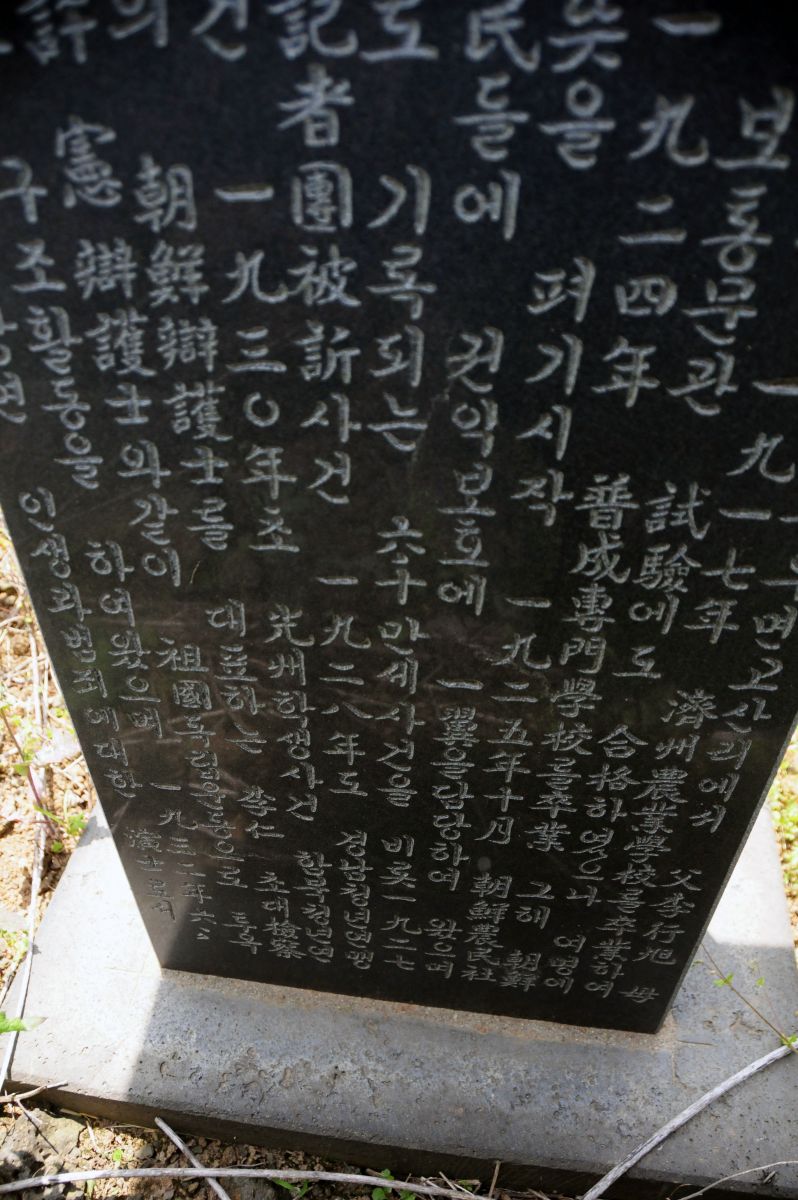 우면고산리에서 父李行旭 母
一九一七年 濟州農業學校를卒業하여
보통문관 試驗에도 合格하였으나 여명에
一九二四年 普成專門學校를卒業 그해 朝鮮
뜻을 펴기시작 一九二五年十月 朝鮮農民社
民들에 권익보호에 一翼을담당하여 왔으며
도 기록되는 六十만세사건을 비롯一九二七
記者團被訴사건 一九二八年도 경남청년연맹
건 一九三0年초 光州학생사건 함북청년연
의 朝鮮辯護士들 대표하는 李仁 초대檢察
許憲 辯護士와같이 祖國독립운동으로 투옥
구조활동을 하여왔으며 一九三二年六
인생과범죄에대한 演士로서